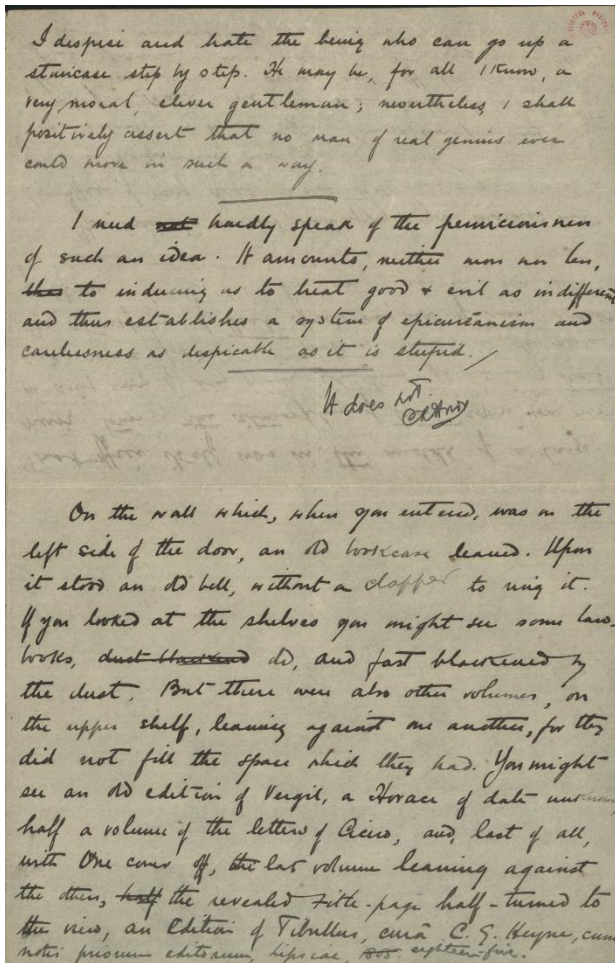 I despise and hate the being who can go up a
staircase step by step. He may be, for all I know, a
very moral, clever gentleman; nevertheless, I shall
positively assert that no man of real genius ever
could move in such a way.
I need not hardly speak of the perniciousness
of such an idea. It amounts, neither more nor less,
to inducing us to treat good & evil as indifferent
and thus establishes a system of epicureanism and
carelessness as despicable as it is stupid.
It does not.
On the wall which, when you entered, was on the
left side of the door, an old bookcase leaned. Upon
it stood an old bell, without a clapper to ring it.
If you looked at the shelves you might see some law-
books, dust blackened old, and fast blackened by
the dust. But there were also other volumes, on
the upper shelf, leaning against one another, for they
did not fill the space which they had. You might
see an old edition of Vergil, a Horace of date unknown,
half a volume of the letters of Cicero, and, last of all,
with One cover off, the last volume leaning against
the others, half the revealed title-page half-turned to
the view, an Edition of Tibullus, curâ C. G. Heyne, cum
notis priorum editorum, Lipscae, eighteen-five.